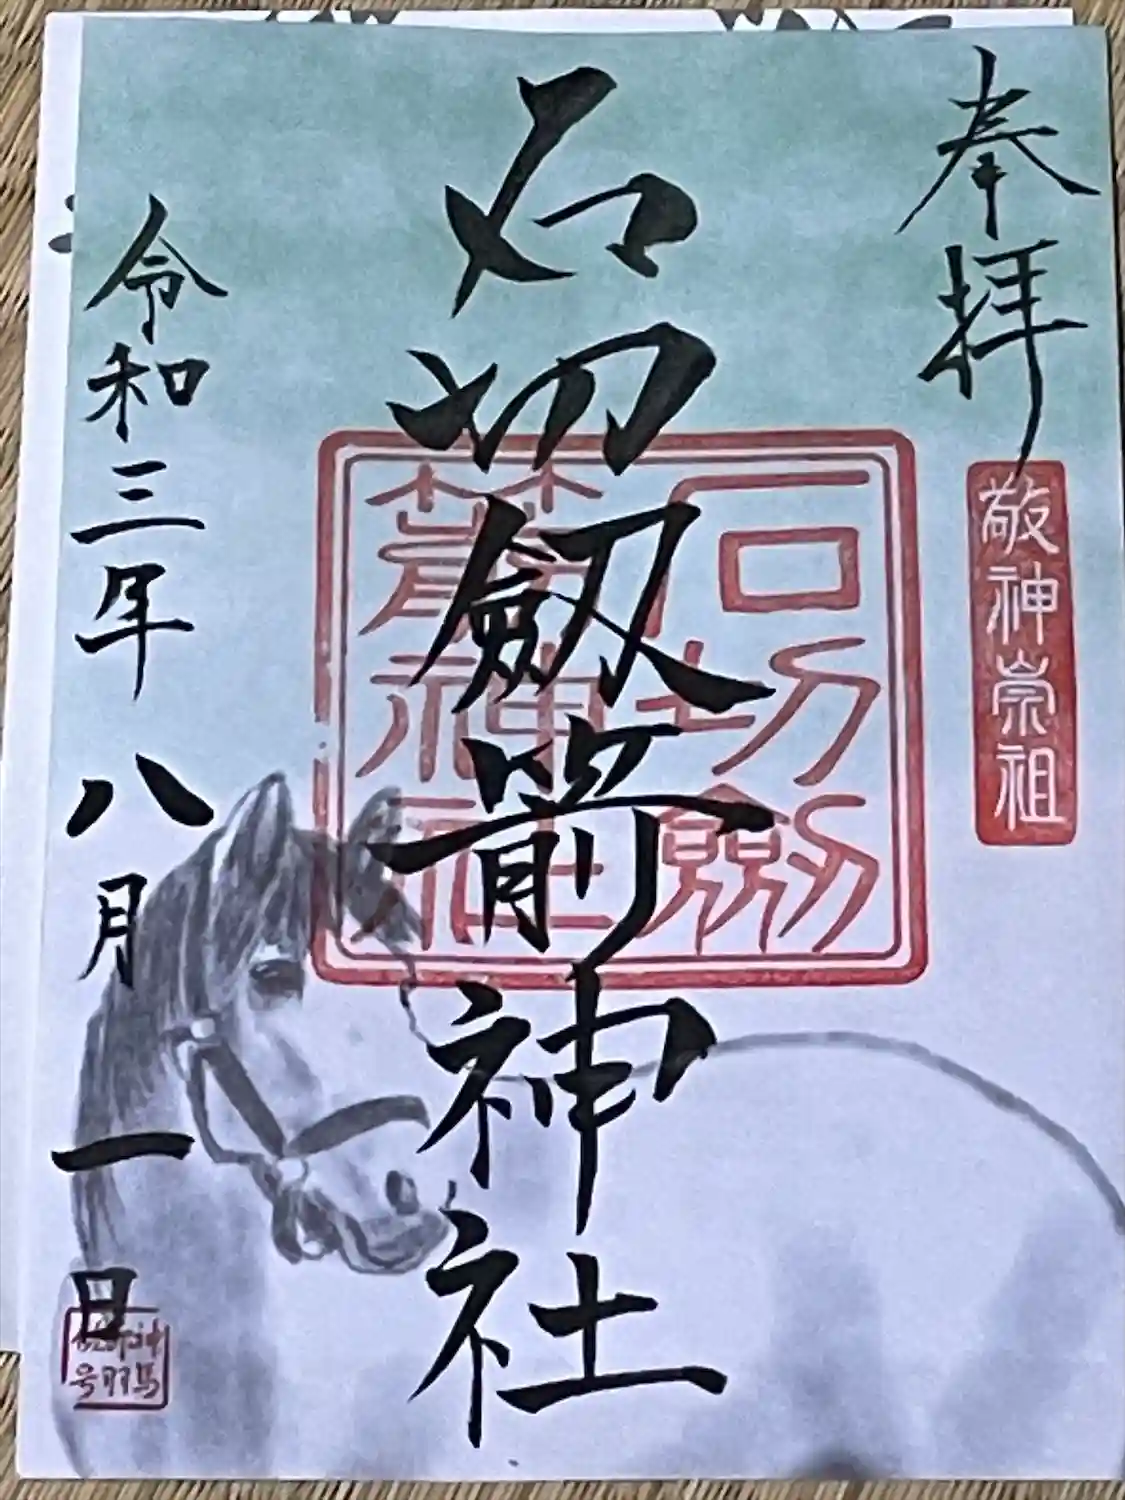 奉拝
敬神崇祖
石切劔箭神社
石切劔
箭神社
令和三年八月一日